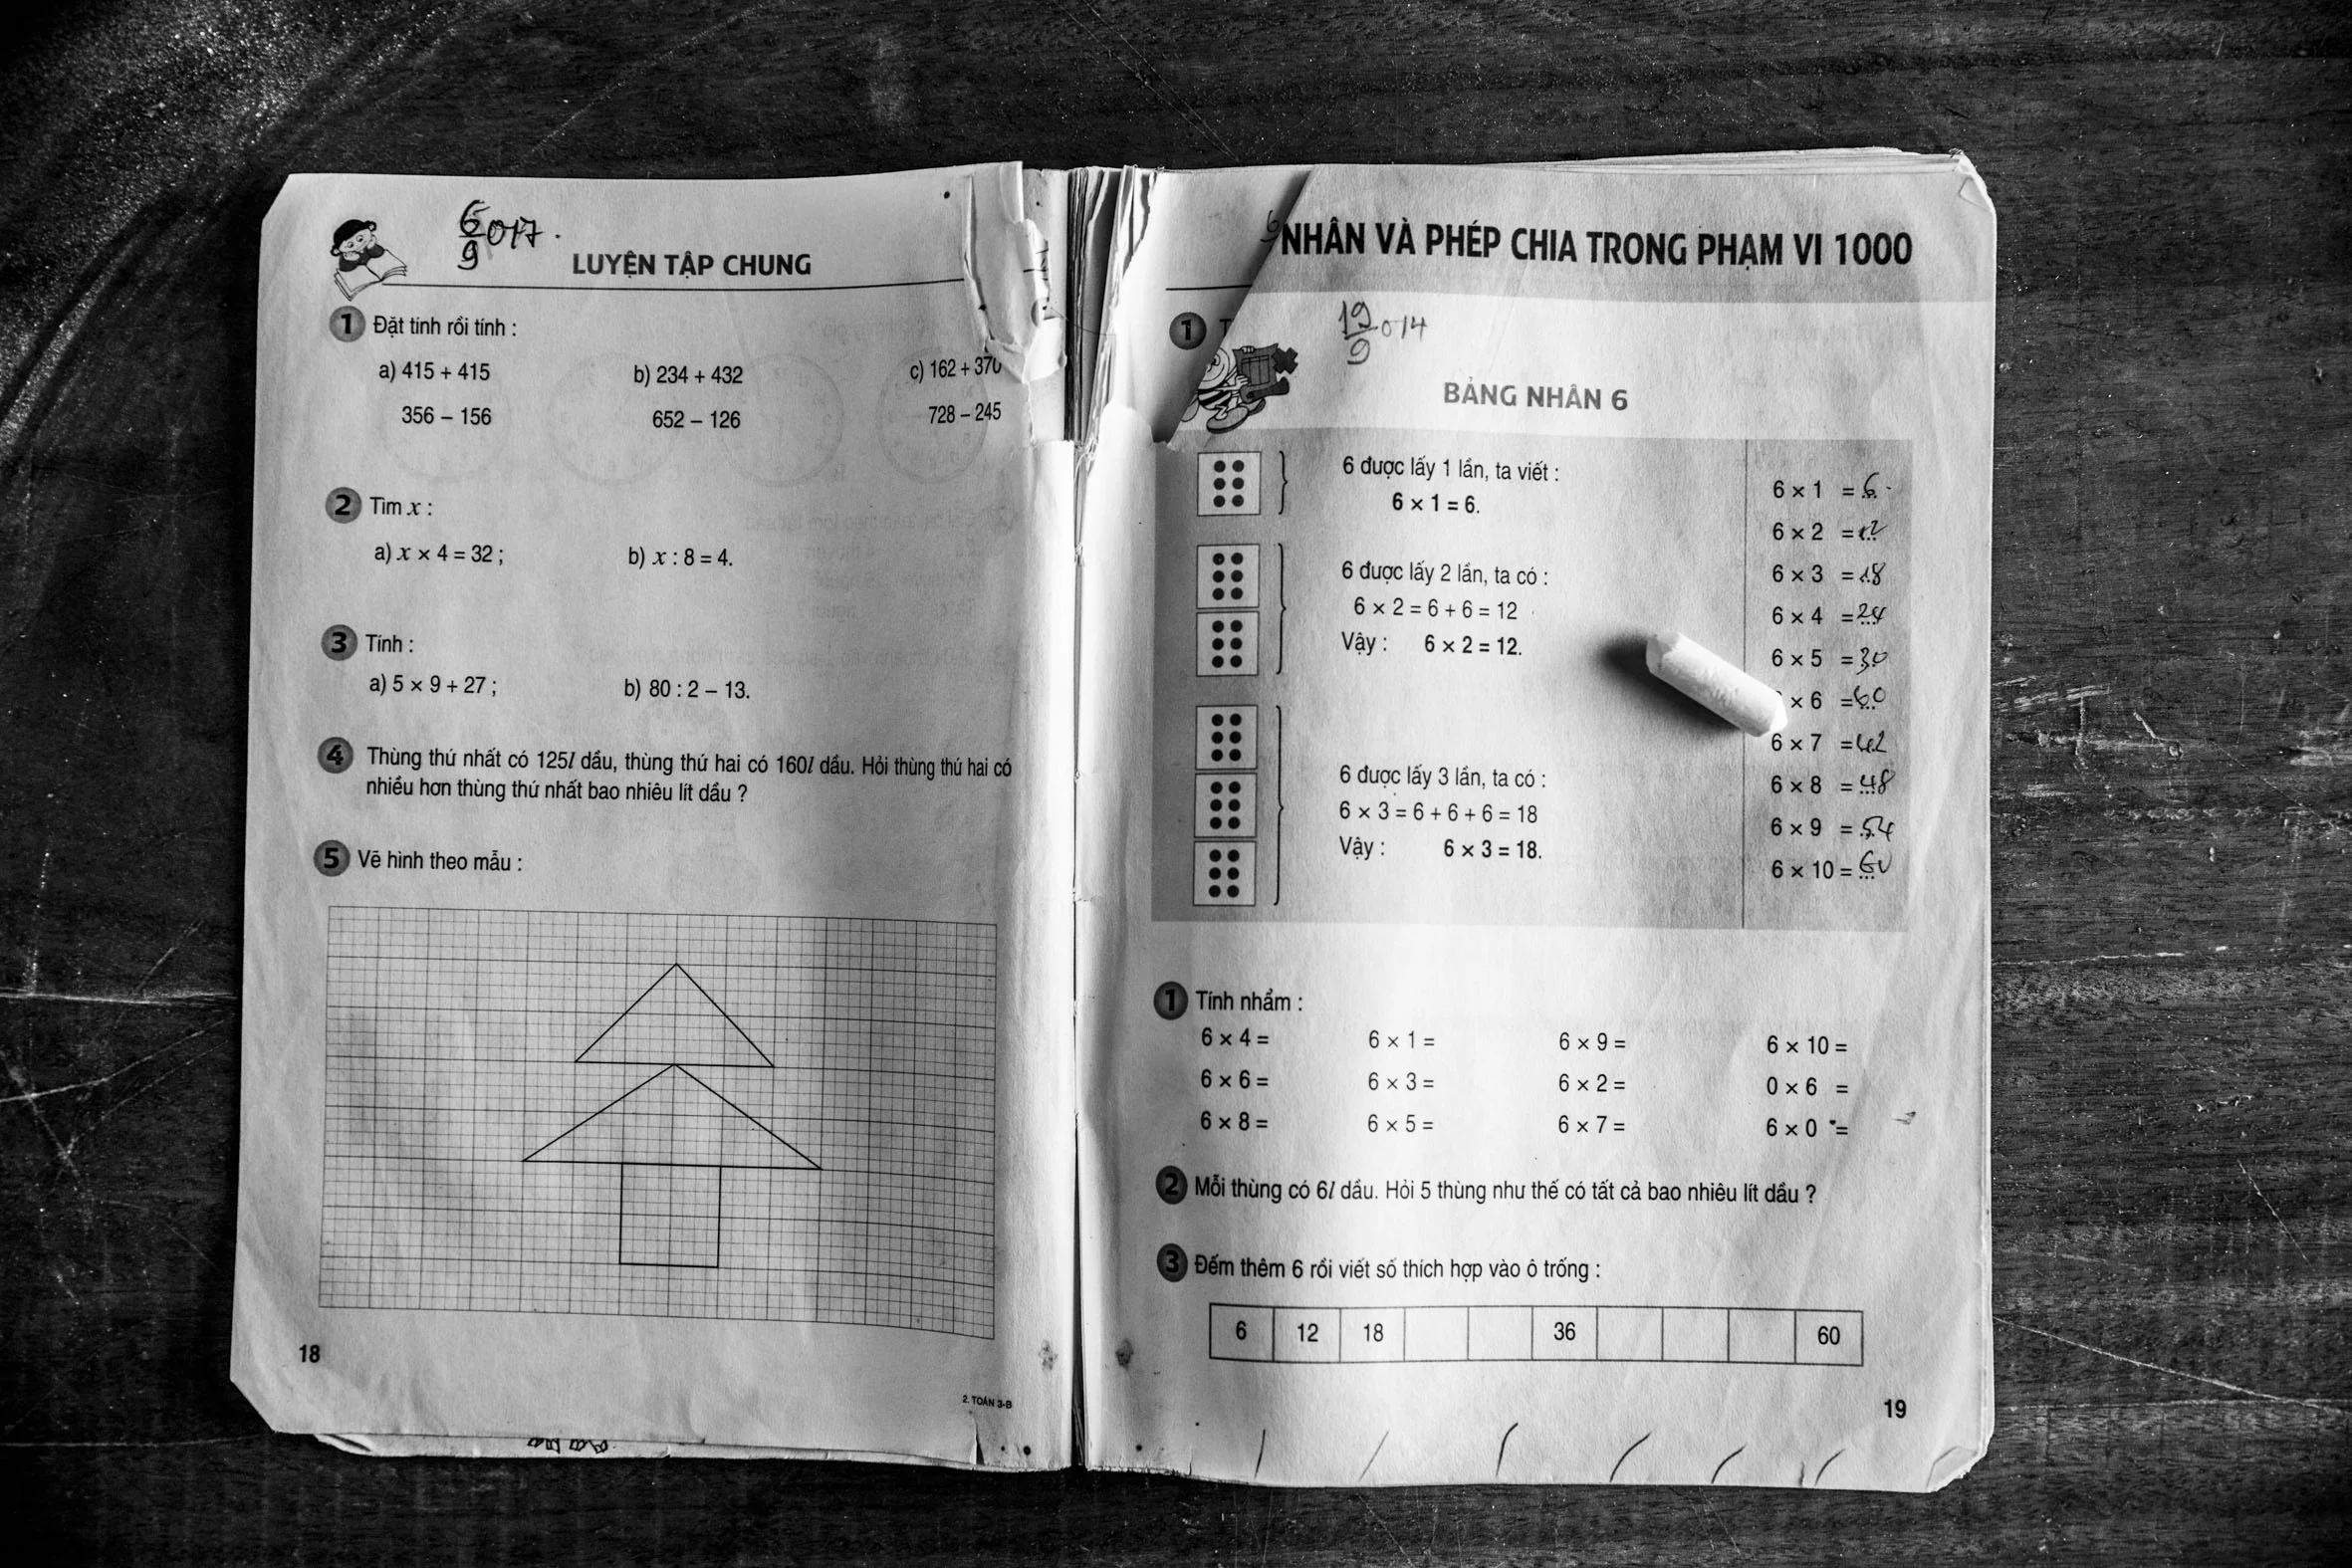 6/9 017.
LUYỆN TẬP CHUNG
1 Đặt tính rồi tính :
a) 415 + 415 b) 234 + 432 c) 162 + 370
356 – 156 652 – 126 728 – 245
2 Tìm x :
a) x × 4 = 32 ; b) x : 8 = 4.
3 Tính :
a) 5 × 9 + 27 ; b) 80 : 2 – 13.
4 Thùng thứ nhất có 125l dầu, thùng thứ hai có 160l dầu. Hỏi thùng thứ hai có
nhiều hơn thùng thứ nhất bao nhiêu lít dầu ?
5 Vẽ hình theo mẫu :
18
2. TOÁN 3-B
NHÂN VÀ PHÉP CHIA TRONG PHẠM VI 1000
1
19/9 014
BẢNG NHÂN 6
6 được lấy 1 lần, ta viết :
6 × 1 = 6.
6 được lấy 2 lần, ta có :
6 × 2 = 6 + 6 = 12
Vậy : 6 × 2 = 12.
6 được lấy 3 lần, ta có :
6 × 3 = 6 + 6 + 6 = 18
Vậy : 6 × 3 = 18.
6 × 1 = 6
6 × 2 = 12
6 × 3 = 18
6 × 4 = 24
6 × 5 = 30
× 6 = 60
6 × 7 = 42
6 × 8 = 48
6 × 9 = 54
6 × 10 = 60
1 Tính nhẩm :
6 × 4 = 6 × 1 = 6 × 9 = 6 × 10 =
6 × 6 = 6 × 3 = 6 × 2 = 0 × 6 =
6 × 8 = 6 × 5 = 6 × 7 = 6 × 0 =
2 Mỗi thùng có 6l dầu. Hỏi 5 thùng như thế có tất cả bao nhiêu lít dầu ?
3 Đếm thêm 6 rồi viết số thích hợp vào ô trống :
6 12 18 36 60
19